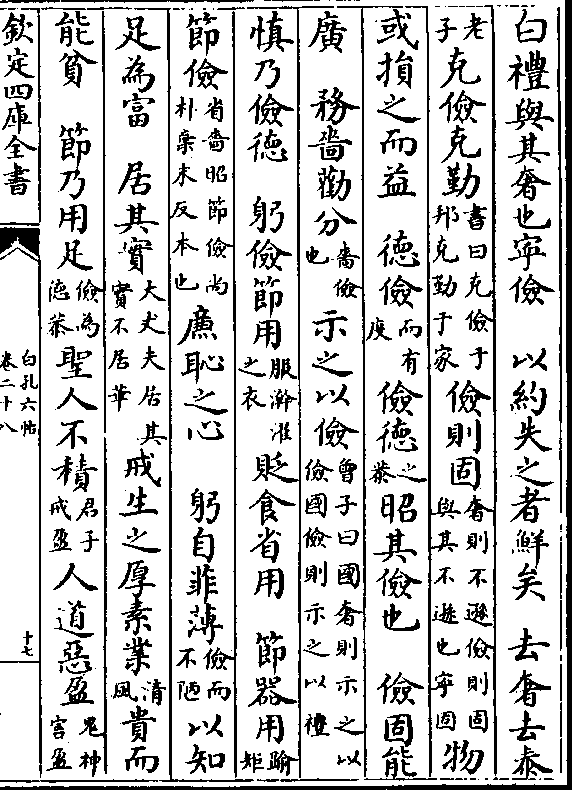 白禮與其奢也寧儉　以約失之者鮮矣　去奢去泰
老子克儉克勤書曰克儉于邦克勤于家儉則固奢則不遜儉則固與其不遜也寧固物
或損之而益　德儉而有度儉德之恭昭其儉也　儉固能
廣　務嗇勸分嗇儉也示之以儉曾子曰國奢則示之以儉國儉則示之以禮
慎乃儉德　躬儉節用服澣濯之衣貶食省用　節器用踰矩
節儉省嗇昭節儉尚朴棄末反本也廉恥之心　躬自菲薄儉而不陋以知
足為富　居其實大丈夫居其實不居華戒生之厚素業清風貴而
能貧　節乃用足儉為德恭聖人不積君子戒盈人道惡盈鬼神害盈
欽定四庫全書
白孔六帖
卷二十八
十七